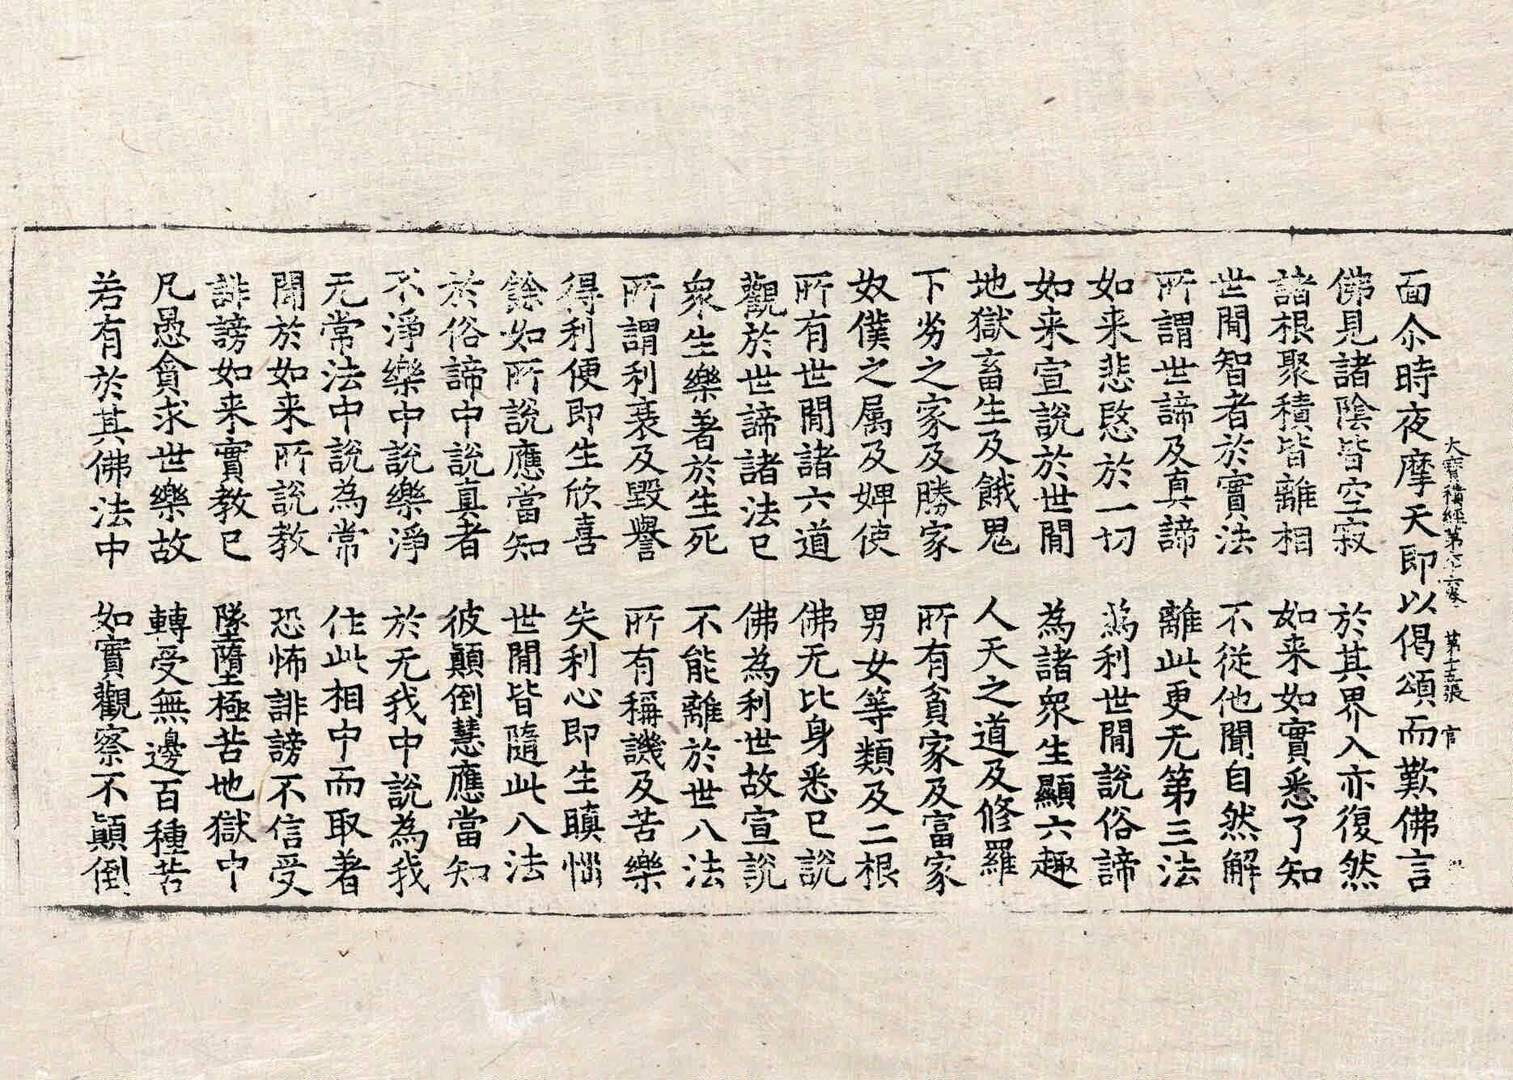 大寶積經第六十六卷 第十五張 官
面尒時夜摩天即以偈頌而歎佛言
佛見諸陰皆空寂 於其界入亦復然
諸根聚積皆離相 如来如實悉了知
世間智者於實法 不從他聞自然解
所謂世諦及真諦 離此更无第三法
如来悲愍於一切 為利世間說俗諦
如来宣説於世間 為諸衆生顯六趣
地獄畜生及餓鬼 人天之道及修羅
下劣之家及勝家 所有貧家及富家
奴僕之属及婢使 男女等類及二根
所有世間諸六道 佛无比身悉已説
觀於世諦諸法已 佛為利世故宣説
衆生樂著於生死 不能離於世八法
所謂利衰及毀譽 所有稱譏及苦樂
得利便即生欣喜 失利心即生瞋惱
餘如所說應當知 世間皆隨此八法
於俗諦中説真者 彼顛倒慧應當知
不淨樂中説樂淨 於无我中說為我
无常法中説為常 住此相中而取著
聞於如来所説教 恐怖誹謗不信受
誹謗如来實教已 墜墮極苦地獄中
凡愚貪求世樂故 轉受無邊百種苦
若有於其佛法中 如實觀察不顛倒